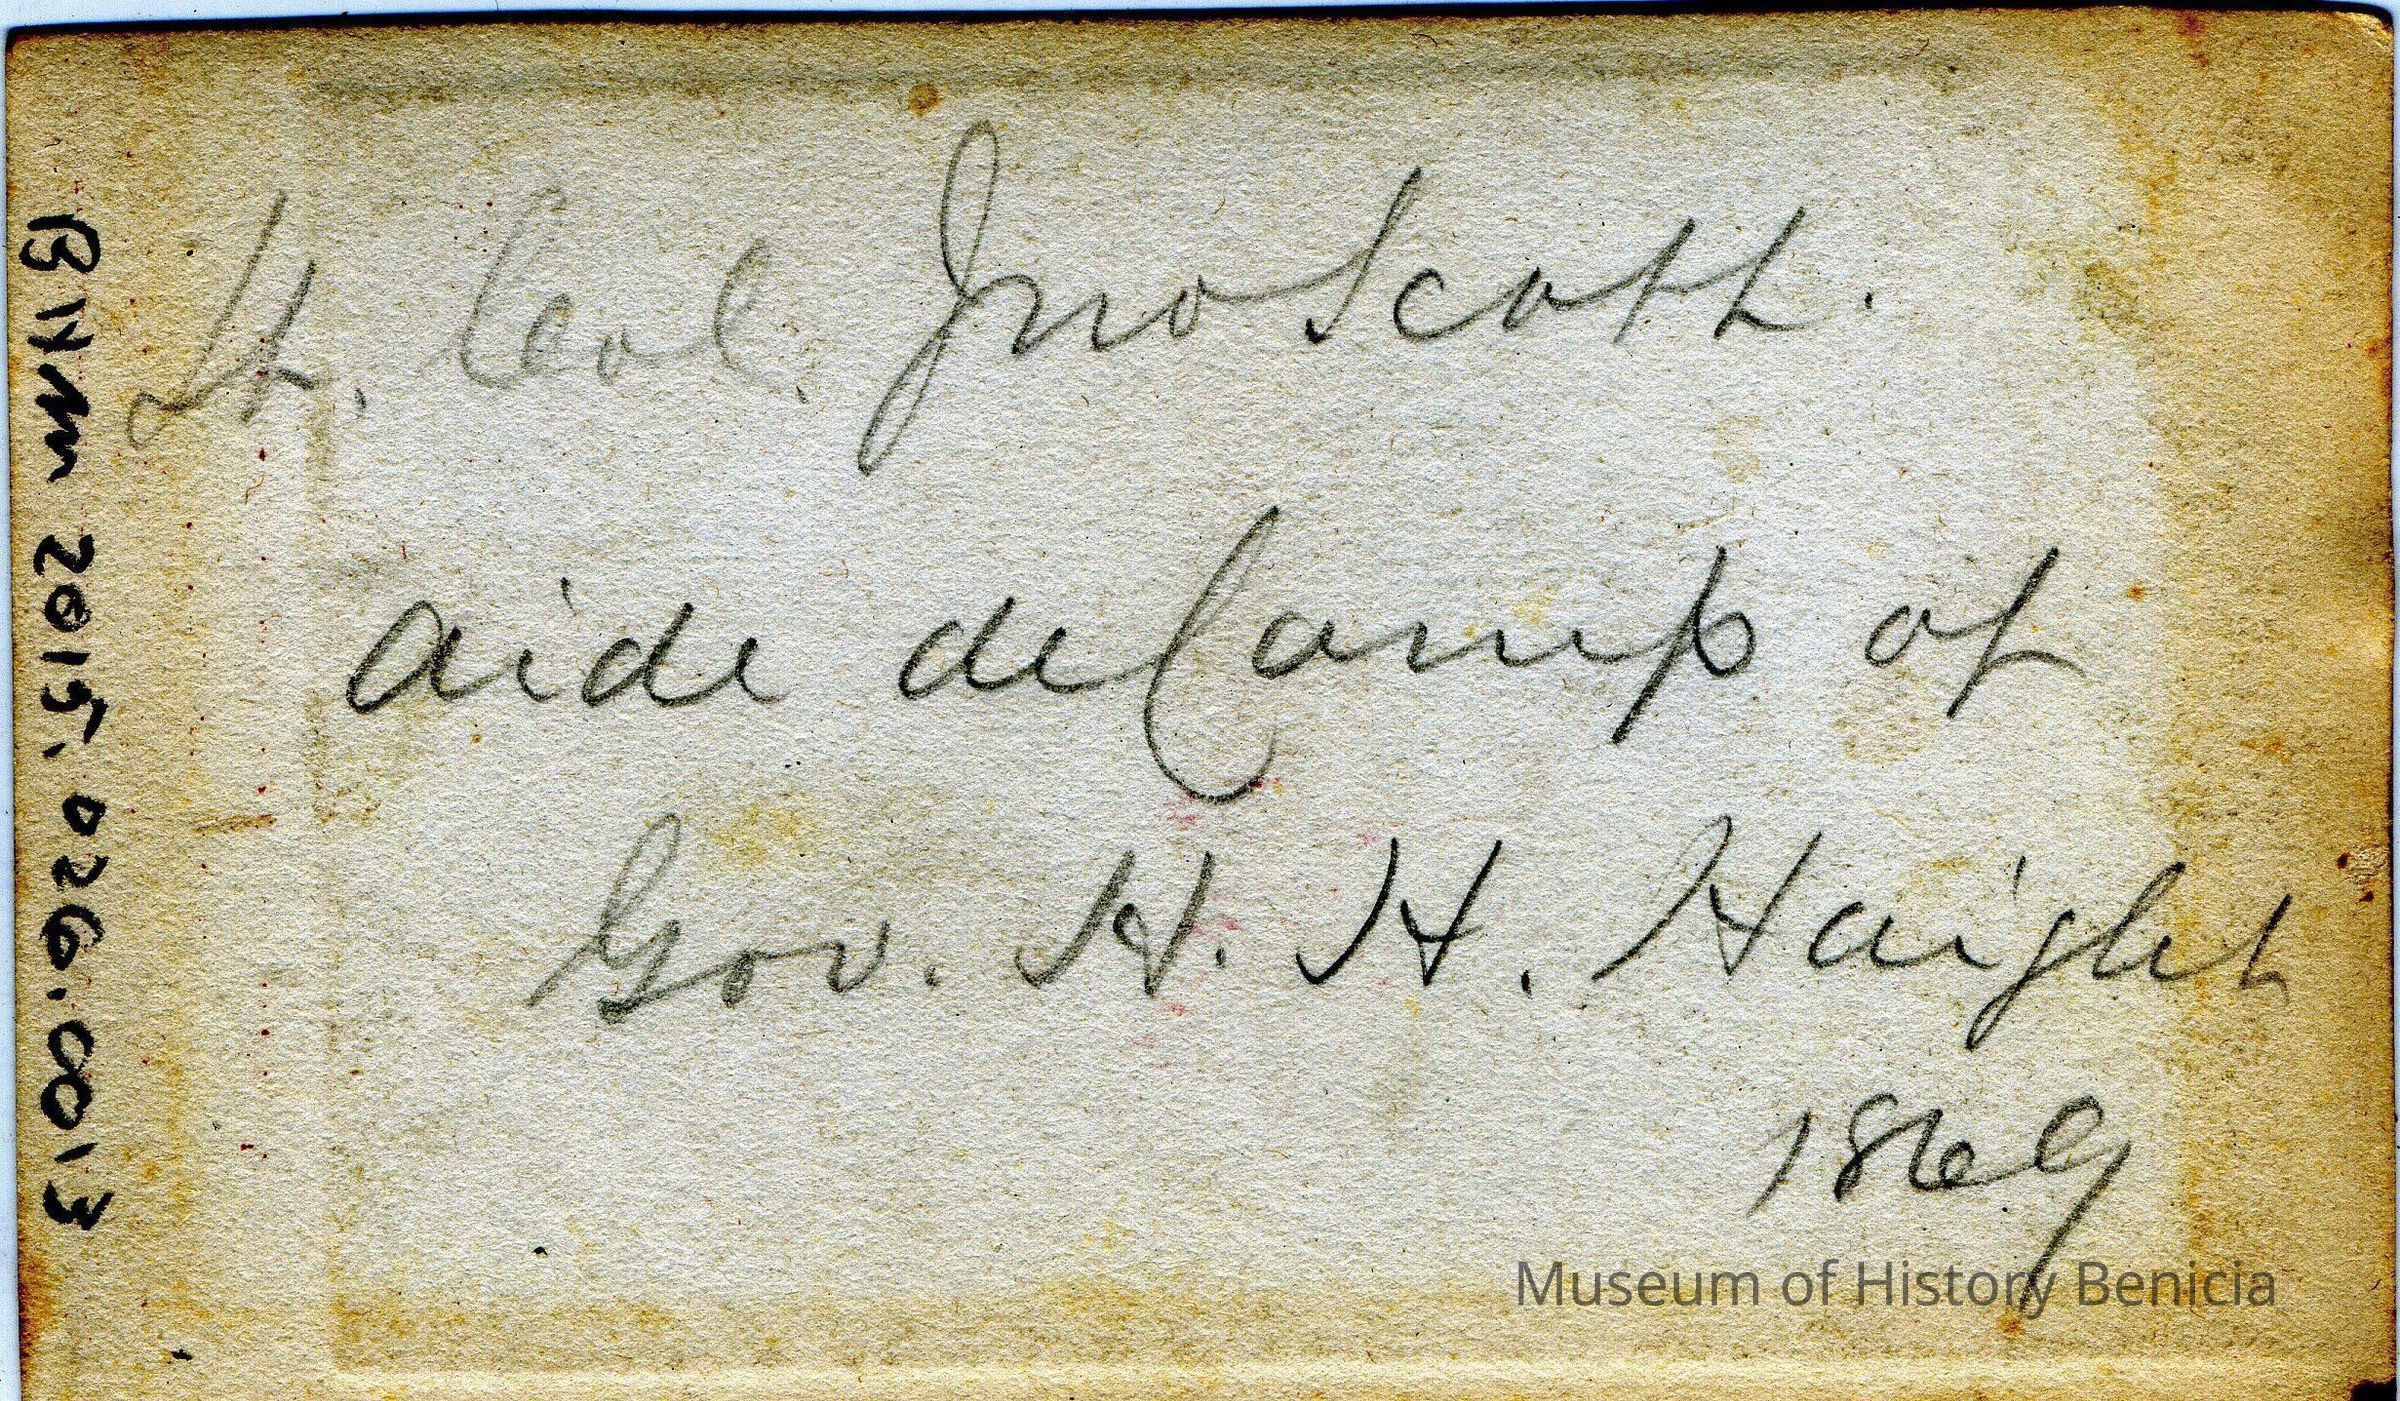 Lt. Col. Jno Scott.
aide de Camp of
Gov. H. H. Haight
1869
BHM 2015.026.0013
Museum of History Benicia